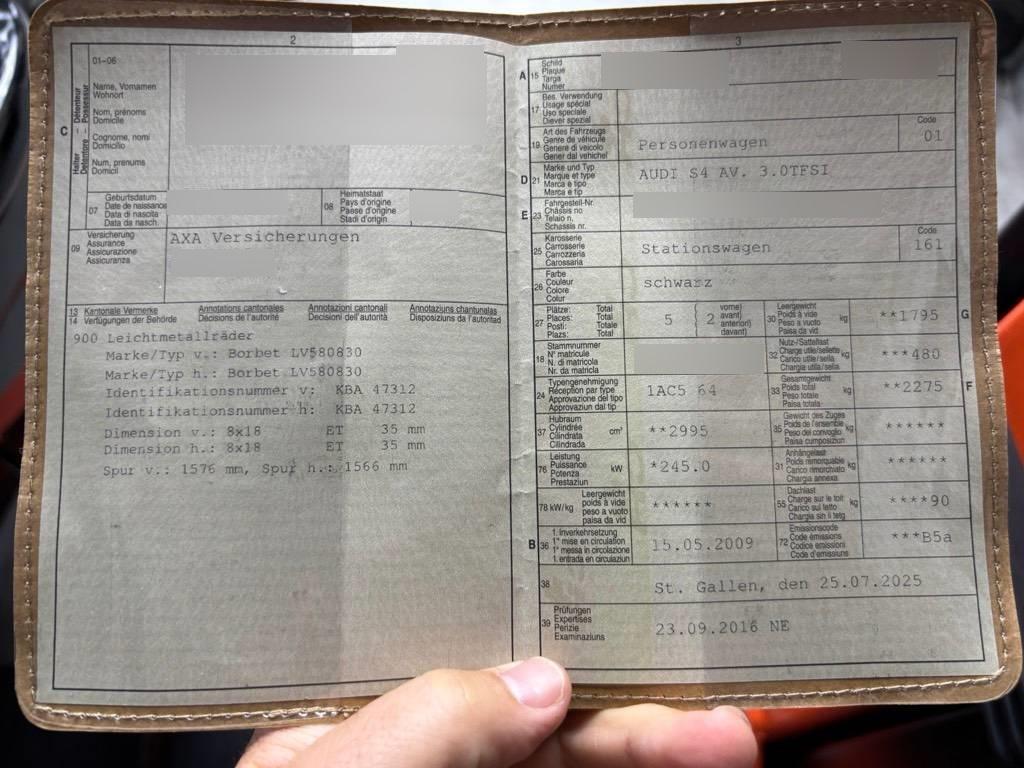 2
C
Halter – Détenteur
Detentore – Possessur
01-06
Name, Vornamen
Wohnort
Nom, prénoms
Domicile
Cognome, nomi
Domicilio
Num, prenums
Domicil
07
Geburtsdatum
Date de naissance
Data di nascita
Data da nasch.
08
Heimatstaat
Pays d'origine
Paese d'origine
Stadi d'origin
09
Versicherung
Assurance
Assicurazione
Assicuranza
AXA Versicherungen
13 Kantonale Vermerke Annotations cantonales Annotazioni cantonali Annotaziuns chantunalas
14 Verfügungen der Behörde Décisions de l'autorité Decisioni dell'autorità Disposiziuns da l'autoritad
900 Leichtmetallräder
Marke/Typ v.: Borbet LV580830
Marke/Typ h.: Borbet LV580830
Identifikationsnummer v: KBA 47312
Identifikationsnummer h: KBA 47312
Dimension v.: 8x18 ET 35 mm
Dimension h.: 8x18 ET 35 mm
Spur v.: 1576 mm, Spur h.: 1566 mm
3
A 15
Schild
Plaque
Targa
Numer
17
Bes. Verwendung
Usage spécial
Uso speciale
Diever spezial
19
Art des Fahrzeugs
Genre de véhicule
Genere di veicolo
Gener dal vehichel
Personenwagen
Code
01
D 21
Marke und Typ
Marque et type
Marca e tipo
Marca e tip
AUDI S4 AV. 3.0TFSI
E 23
Fahrgestell-Nr.
Châssis no
Telaio n.
Schassis nr.
25
Karosserie
Carrosserie
Carrozzeria
Carossaria
Stationswagen
Code
161
26
Farbe
Couleur
Colore
Colur
schwarz
27
Plätze: Total
Places: Total
Posti: Totale
Plazs: Total
5 { 2
vorne)
avant)
anteriori)
davant)
30
Leergewicht
Poids à vide
Peso a vuoto
Paisa da vid
kg
**1795
G
18
Stammnummer
N° matricule
N. di matricola
Nr. da matricla
32
Nutz-/Sattellast
Charge utile/sellette
Carico utile/sella
Chargia utila/sella
kg
***480
24
Typengenehmigung
Réception par type
Approvazione del tipo
Approvaziun dal tip
1AC5 64
33
Gesamtgewicht
Poids total
Peso totale
Paisa totala
kg
**2275
F
37
Hubraum
Cylindrée
Cilindrata
Cilindrada
cm³
**2995
35
Gewicht des Zuges
Poids de l'ensemble
Peso del convoglio
Paisa cumposiziun
kg
******
76
Leistung
Puissance
Potenza
Prestaziun
kW
*245.0
31
Anhängelast
Poids remorquable
Carico rimorchiato
Chargia annexa
kg
******
78 kW/kg
Leergewicht
poids à vide
peso a vuoto
paisa da vid
******
55
Dachlast
Charge sur le toit
Carico sul tetto
Chargia sin il tetg
kg
****90
B 36
1. Inverkehrsetzung
1re mise en circulation
1a messa in circolazione
1. entrada en circulaziun
15.05.2009
72
Emissionscode
Code émissions
Codice emissioni
Code d'emissiuns
***B5a
38
St. Gallen, den 25.07.2025
39
Prüfungen
Expertises
Perizie
Examinaziuns
23.09.2016 NE